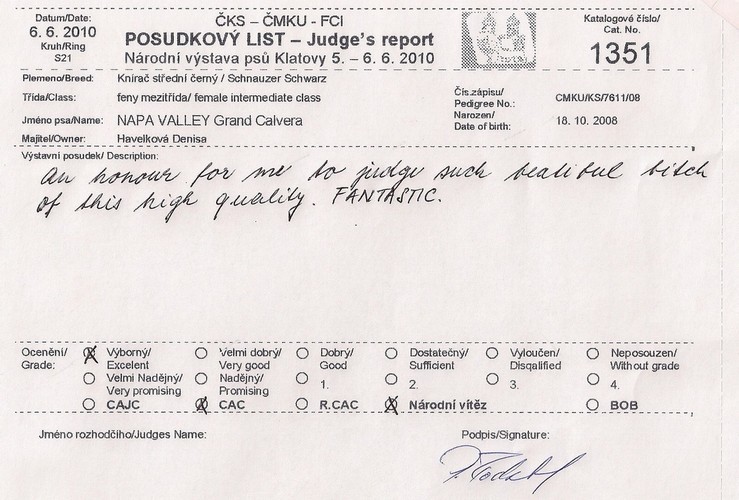 Datum/Date:
6. 6. 2010
Kruh/Ring
S21
ČKS – ČMKU - FCI
POSUDKOVÝ LIST – Judge's report
Národní výstava psů Klatovy 5. – 6. 6. 2010
Katalogové číslo/
Cat. No.
1351
Plemeno/Breed: Knírač střední černý / Schnauzer Schwarz
Třída/Class: feny mezitřída/ female intermediate class
Čís.zápisu/
Pedigree No.: CMKU/KS/7611/08
Jméno psa/Name: NAPA VALLEY Grand Calvera
Narozen/
Date of birth: 18. 10. 2008
Majitel/Owner: Havelková Denisa
Výstavní posudek/ Description:
An honour for me to judge such beatiful bitch
of this high quality. FANTASTIC.
Ocenění/ Grade:
Výborný/ Excelent
Velmi dobrý/ Very good
Dobrý/ Good
Dostatečný/ Sufficient
Vyloučen/ Disqalified
Neposouzen/ Without grade
Velmi Nadějný/ Very promising
Nadějný/ Promising
1.
2.
3.
4.
CAJC
CAC
R.CAC
Národní vítěz
BOB
Jméno rozhodčího/Judges Name:
Podpis/Signature: